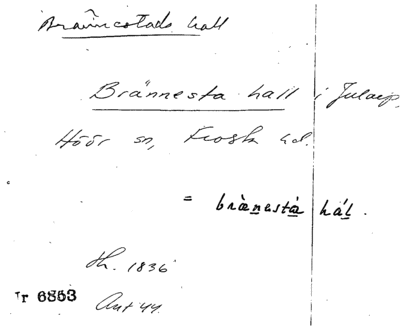 Brännestads hall
Brännesta hall i Julaep,
Höör sn, Frosta hd.
= brànestà hál.
Sk. 1836
Ir 6853
Ant 44.